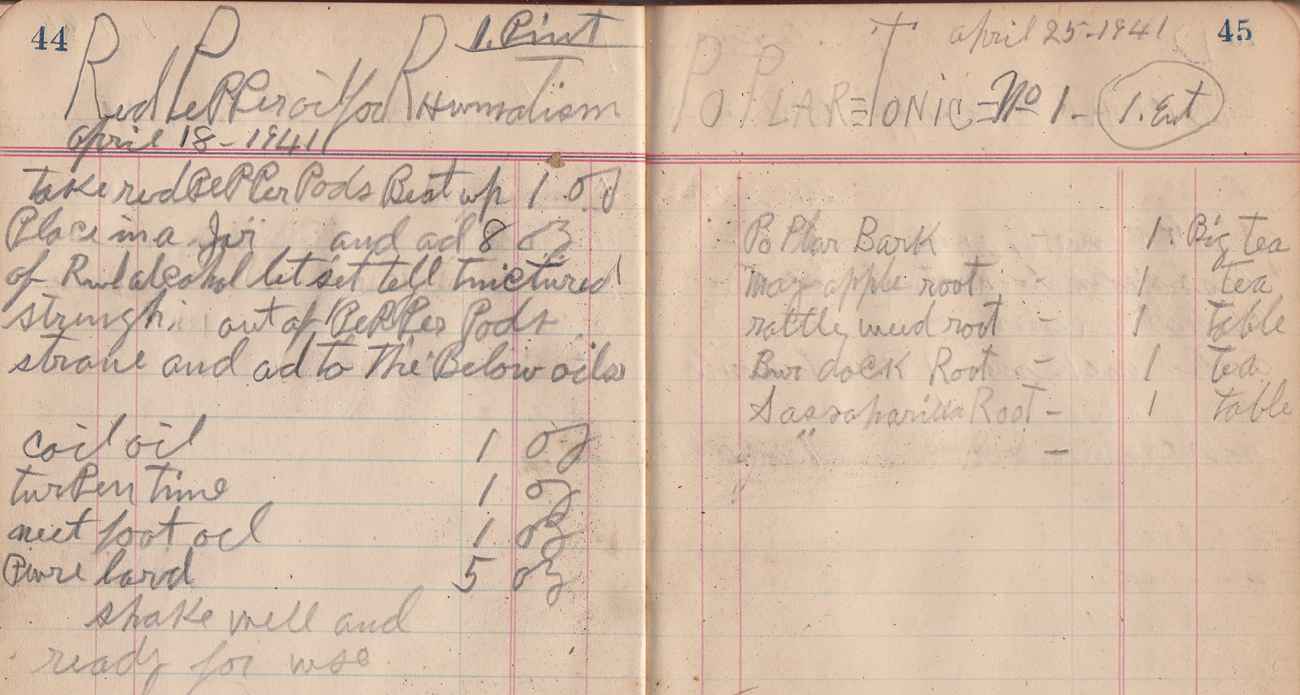 44
1. Pint
Red PePPer oil for Rhumatism
april 18-1941
take red PePPer Pods Beat up 1 oz
Place in a Jar and ad 8 oz
of Rubalcohol let set tell tinctured
strengh out of PePPer Pods
strane and ad to the Below oils
coil oil 1 oz
turPen time 1 oz
neet foot oil 1 oz
Pure lard 5 oz
shake well and
ready for use
45
april 25-1941
PoPLAR = TONIC = No 1 - 1.
Po Plar Bark 1. Big tea
may apple root - 1 tea
rattle weed root - 1 table
Bur dock Root - 1 tea
Sassaparilla Root - 1 table
" -